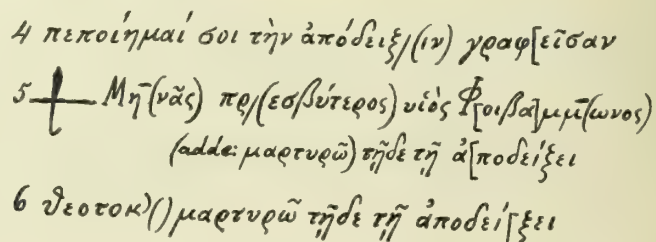 4 πεποίημαί σοι τὴν ἀπόδειξ/(ιν) γραφ[εῖσαν
5 ⳨ Μη̅(νᾶς) πρ/(εσβύτερος) υἱὸς Φ[οιβα]μμ̅(ωνος)
(adde: μαρτυρῶ) τῇδε τῇ ἀ[ποδείξει
6 θεοτοκ)() μαρτυρῶ τῇδε τῇ ἀποδεί[ξει